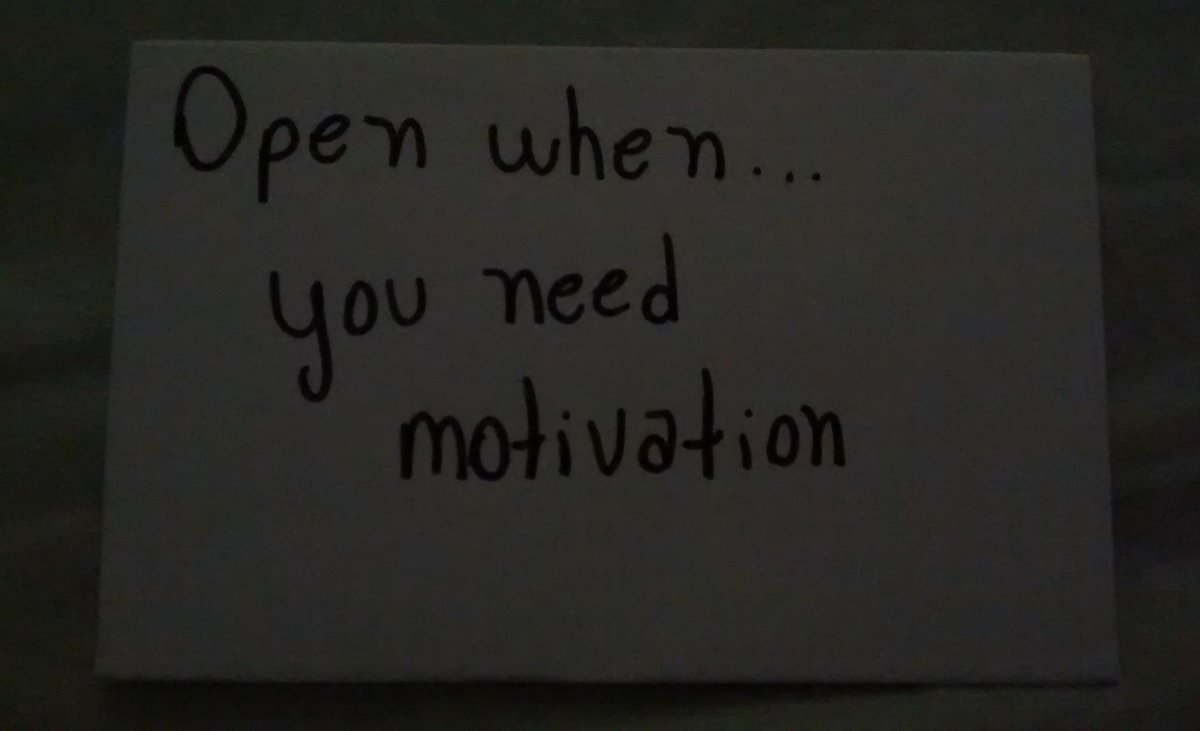 Open when...
you need
motivation